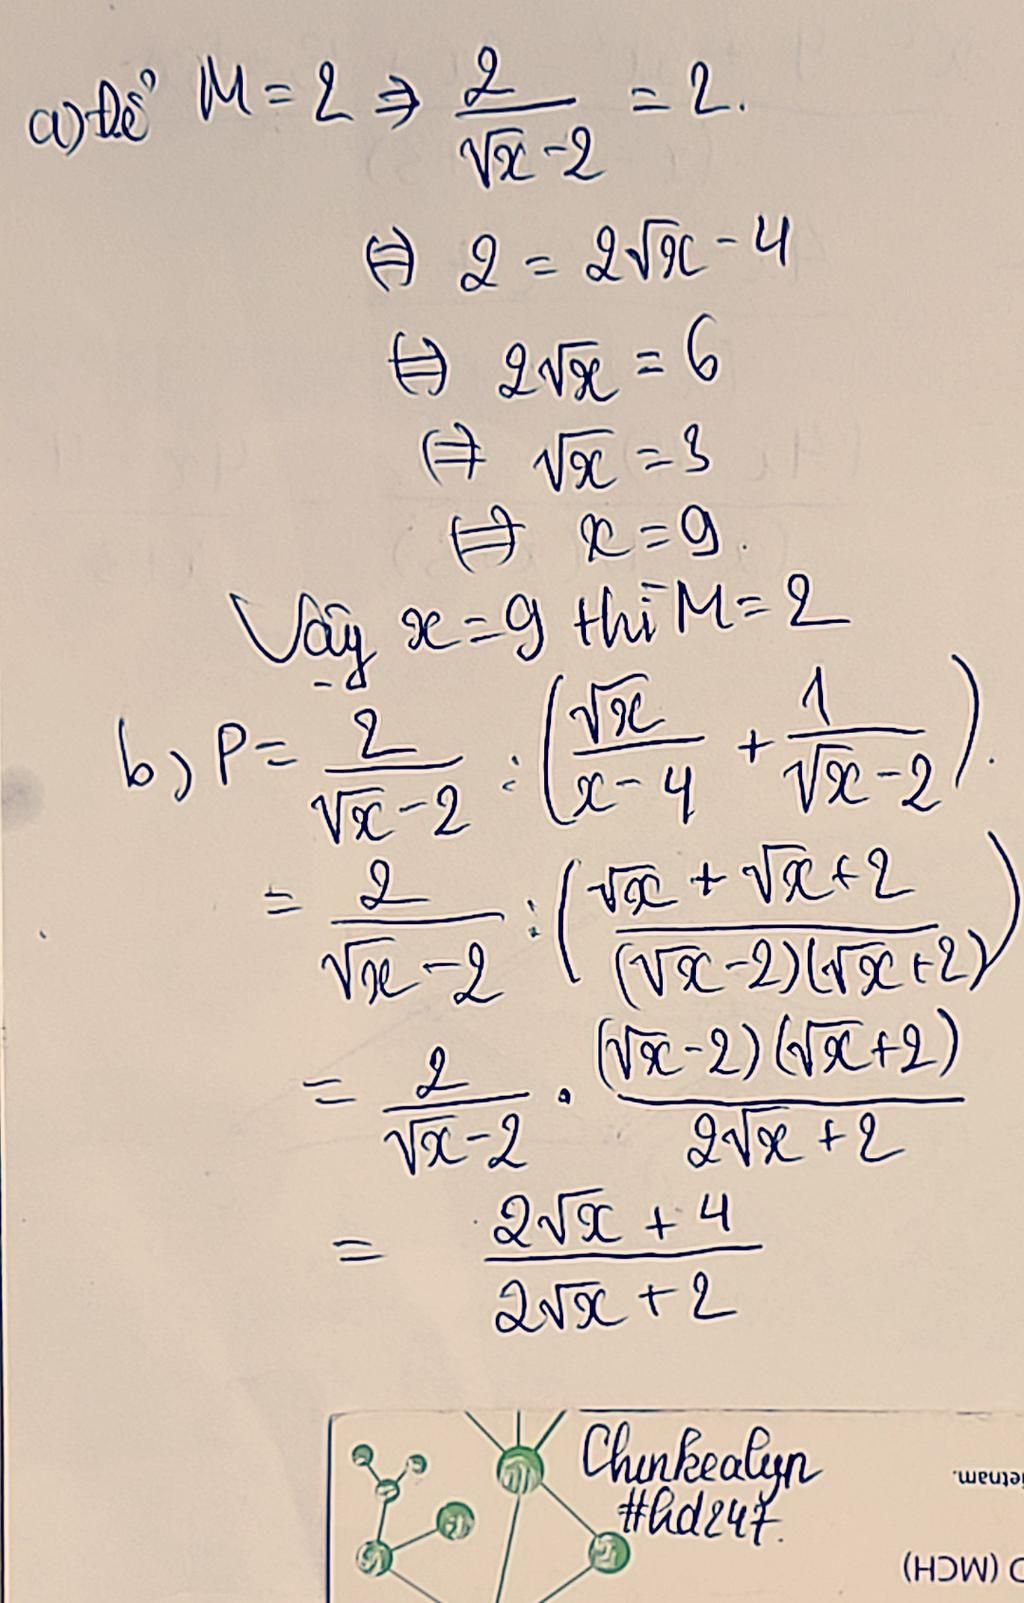 a) Để M = 2 => 2/(√x - 2) = 2.
<=> 2 = 2√x - 4
<=> 2√x = 6
<=> √x = 3
<=> x = 9.
Vậy x = 9 thì M = 2
b) P = 2/(√x - 2) : (√x/(x - 4) + 1/(√x - 2)).
= 2/(√x - 2) : ((√x + √x + 2)/((√x - 2)(√x + 2)))
= 2/(√x - 2) . ((√x - 2)(√x + 2))/(2√x + 2)
= (2√x + 4)/(2√x + 2)
Chunkealyn
#hd247.
(MCH)